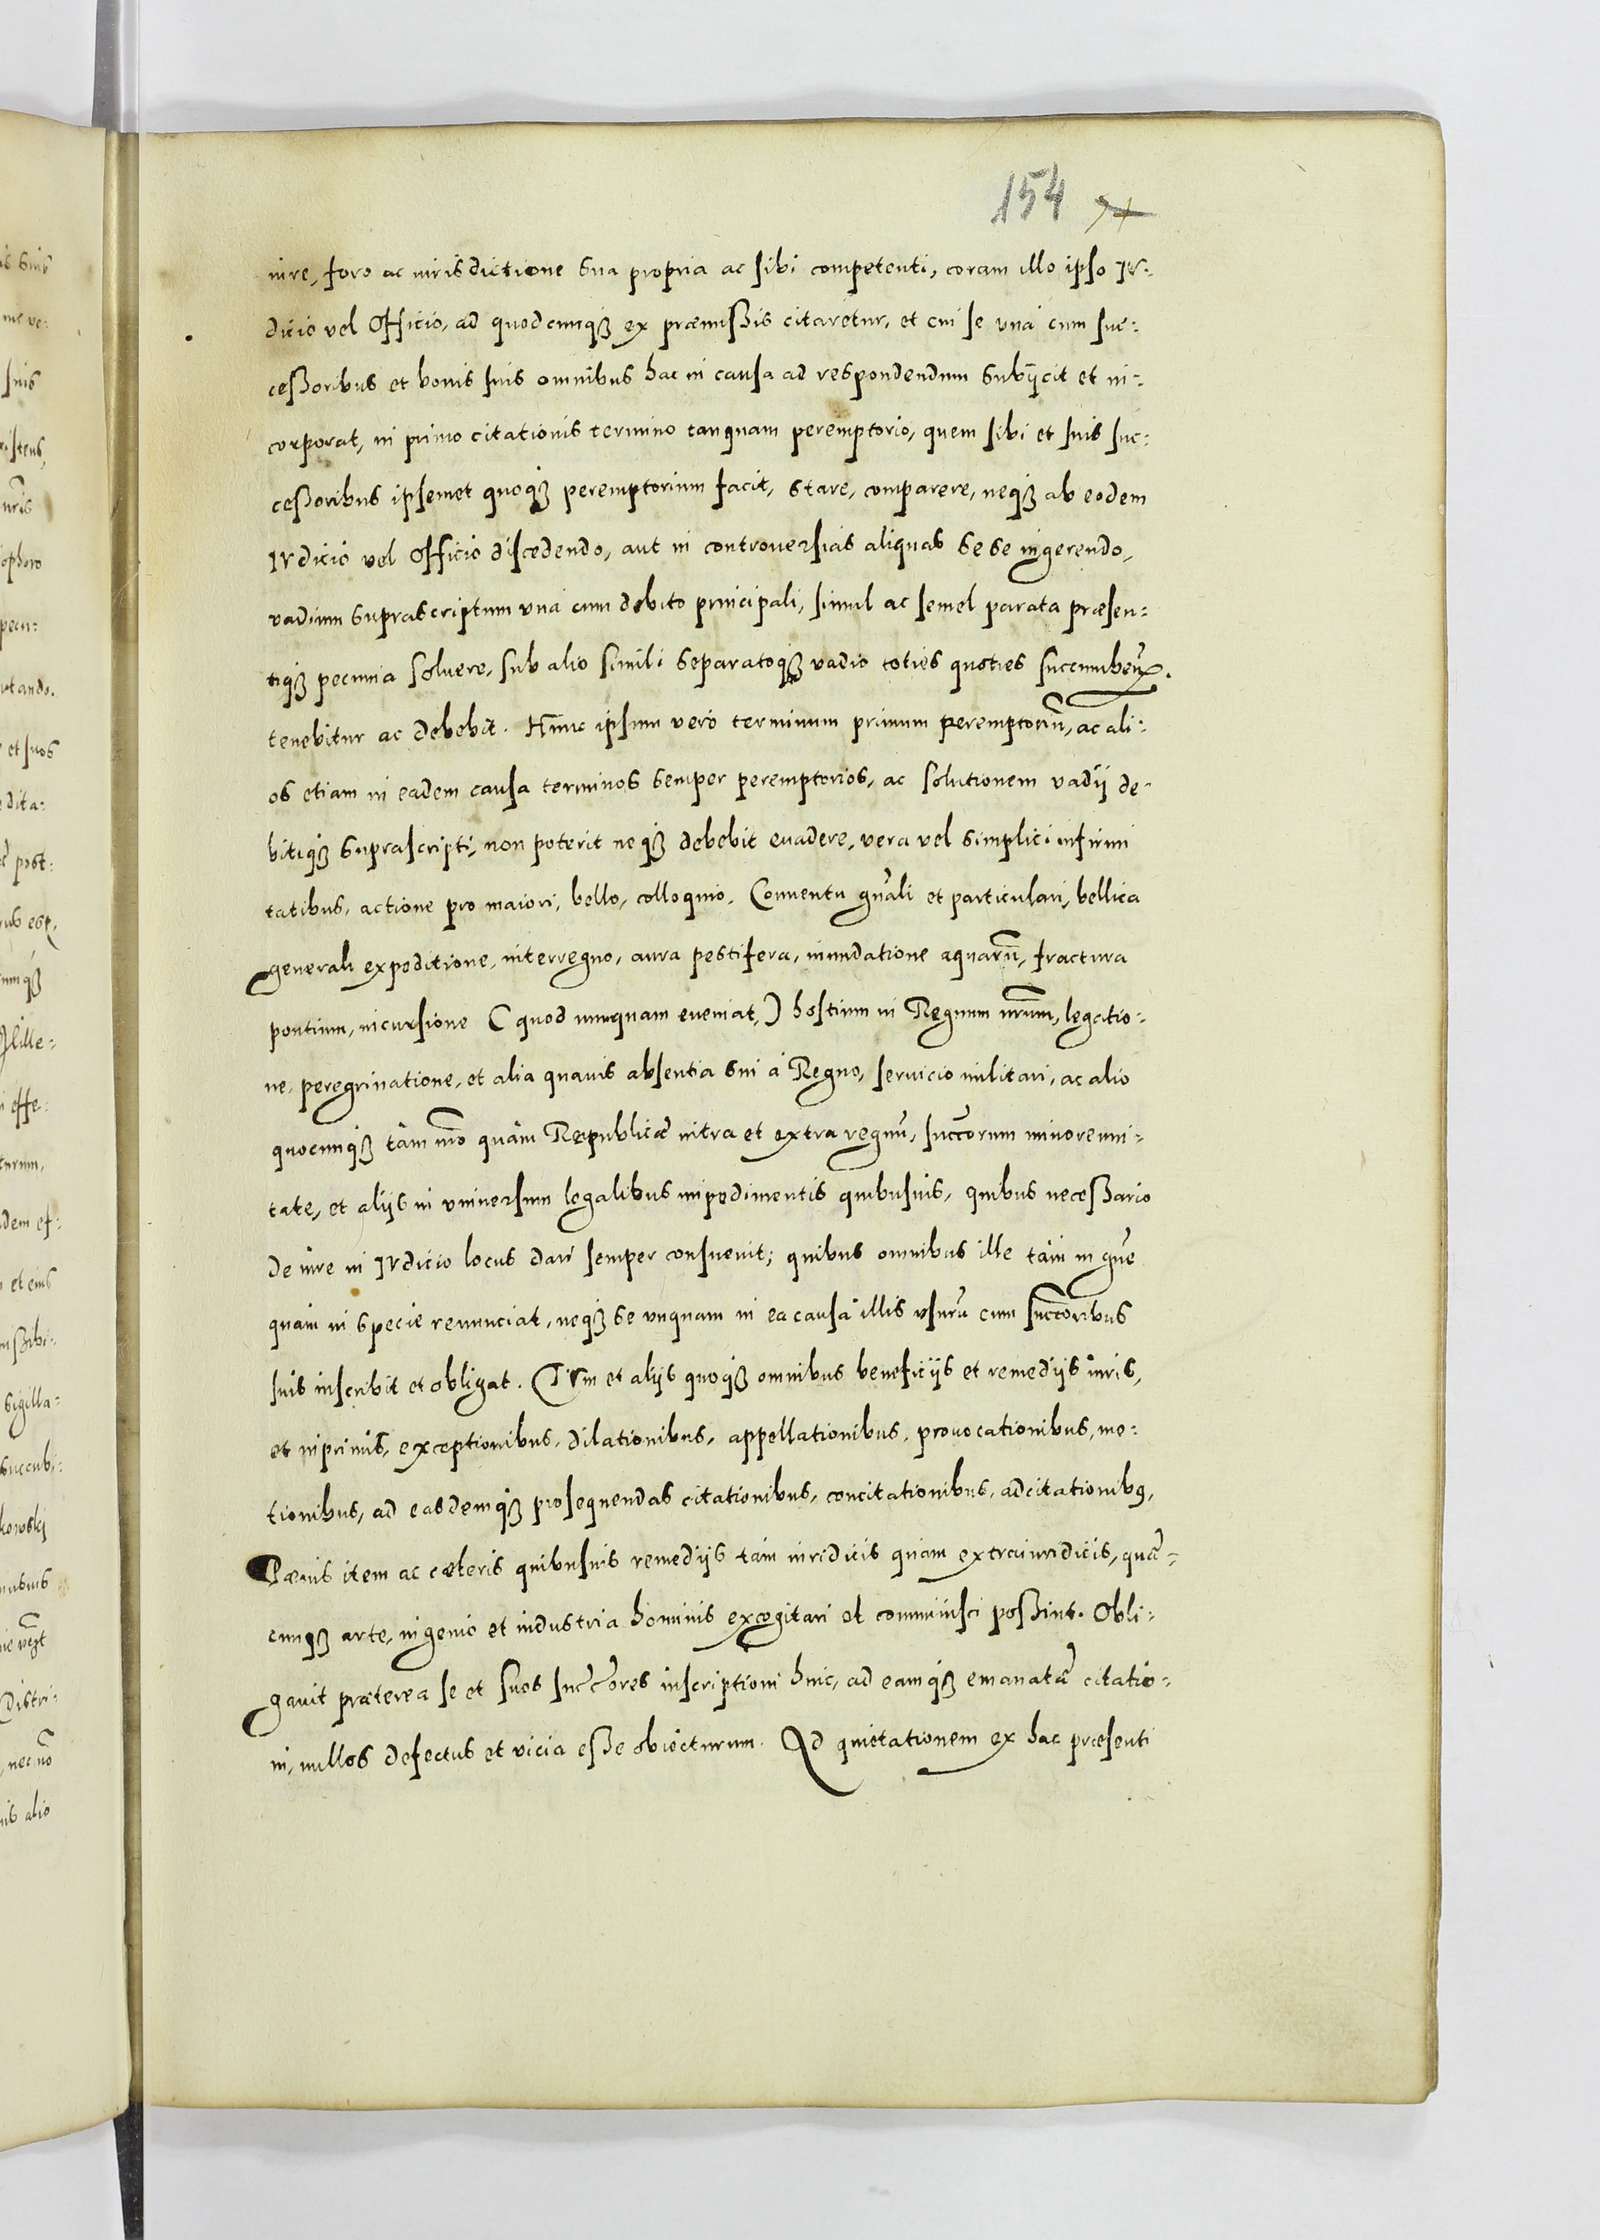 154
iure, foro ac iurisdictione sua propria ac sibi competenti, coram illo ipso Iu-
dicio vel Officio, ad quodcunq₃ ex præmissis citaretur, et cui se unà cum suc-
cessoribus et bonis suis omnibus hac in causa ad respondendum subijcit et in-
corporat, in primo citationis termino tanquam peremptorio, quem sibi et suis suc-
cessoribus ipsemet quoq₃ peremptorium facit, stare, comparere, neq₃ ab eodem
Iudicio vel Officio discedendo, aut in controuersias aliquas sese ingerendo,
vadium suprascriptum unà cum debito principali, simul ac semel parata præsen-
tiq₃ pecunia soluere, sub alio simili separatoq₃ vadio toties quoties succumbeñ.
tenebitur ac debebit. Hunc ipsum verò terminum primum peremptoriũ, ac ali-
os etiam in eadem causa terminos semper peremptorios, ac solutionem vadij de-
bitiq₃ suprascripti, non poterit neq₃ debebit euadere, vera vel simplici infirmi
tatibus, actione pro maiori, bello, colloquio, Conuentu gñali et particulari, bellica
generali expeditione, interregno, aura pestifera, inundatione aquarũ, fractura
pontium, incursione (quod nunquam eueniat,) hostium in Regnum nr̃um, legatio-
ne, peregrinatione, et alia quauis absentia sui à Regno, seruicio militari, ac alio
quocunq₃ tàm nr̃o quàm Reipublicæ intra et extra regnũ, succ̃orum minorenni-
tate, et alijs in vniuersum legalibus impedimentis quibusuis, quibus necessario
de iure in Iudicio locus dari semper consueuit; quibus omnibus ille tàm in gñe
quàm in specie renunciat, neq₃ se vnquam in ea causa illis vsurũ cum succ̃oribus
suis inscribit et obligat. Tum et alijs quoq₃ omnibus beneficijs et remedijs iuris,
et inprimis, exceptionibus, dilationibus, appellationibus, prouocationibus, mo-
tionibus, ad easdemq₃ prosequendas citationibus, concitationibus, adcitationibꝰ,
Pænis item ac cæteris quibusuis remedijs tàm iuridicis quàm extraiuridicis, quæ-
cunq₃ arte, ingenio et industria hominis excogitari et comminisci possint. Obli-
gauit præterea se et suos succ̃ores inscriptioni huic, ad eamq₃ emanatæ citatio-
ni, nullos defectus et vicia esse obiecturum. Ad quietationem ex hac præsenti